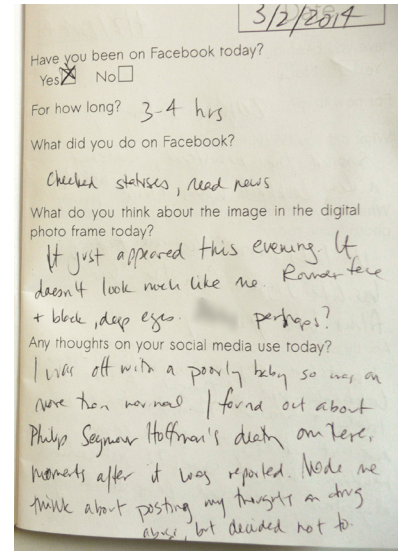 3/2/2014
Have you been on Facebook today?
Yes☒ No☐
For how long? 3-4 hrs
What did you do on Facebook?
Checked statuses, read news
What do you think about the image in the digital
photo frame today?
It just appeared this evening. It
doesn't look much like me. Rounder face
+ black, deep eyes. perhaps?
Any thoughts on your social media use today?
I was off with a poorly baby so was on
more than normal. I found out about
Philip Seymour Hoffman's death on here,
moments after it was reported. Made me
think about posting my thoughts on drug
abuse, but decided not to.